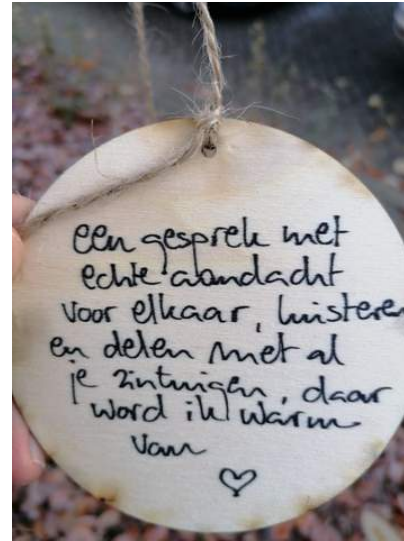 een gesprek met
echte aandacht
voor elkaar, luisteren
en delen met al
je zintuigen, daar
word ik warm
van
♡